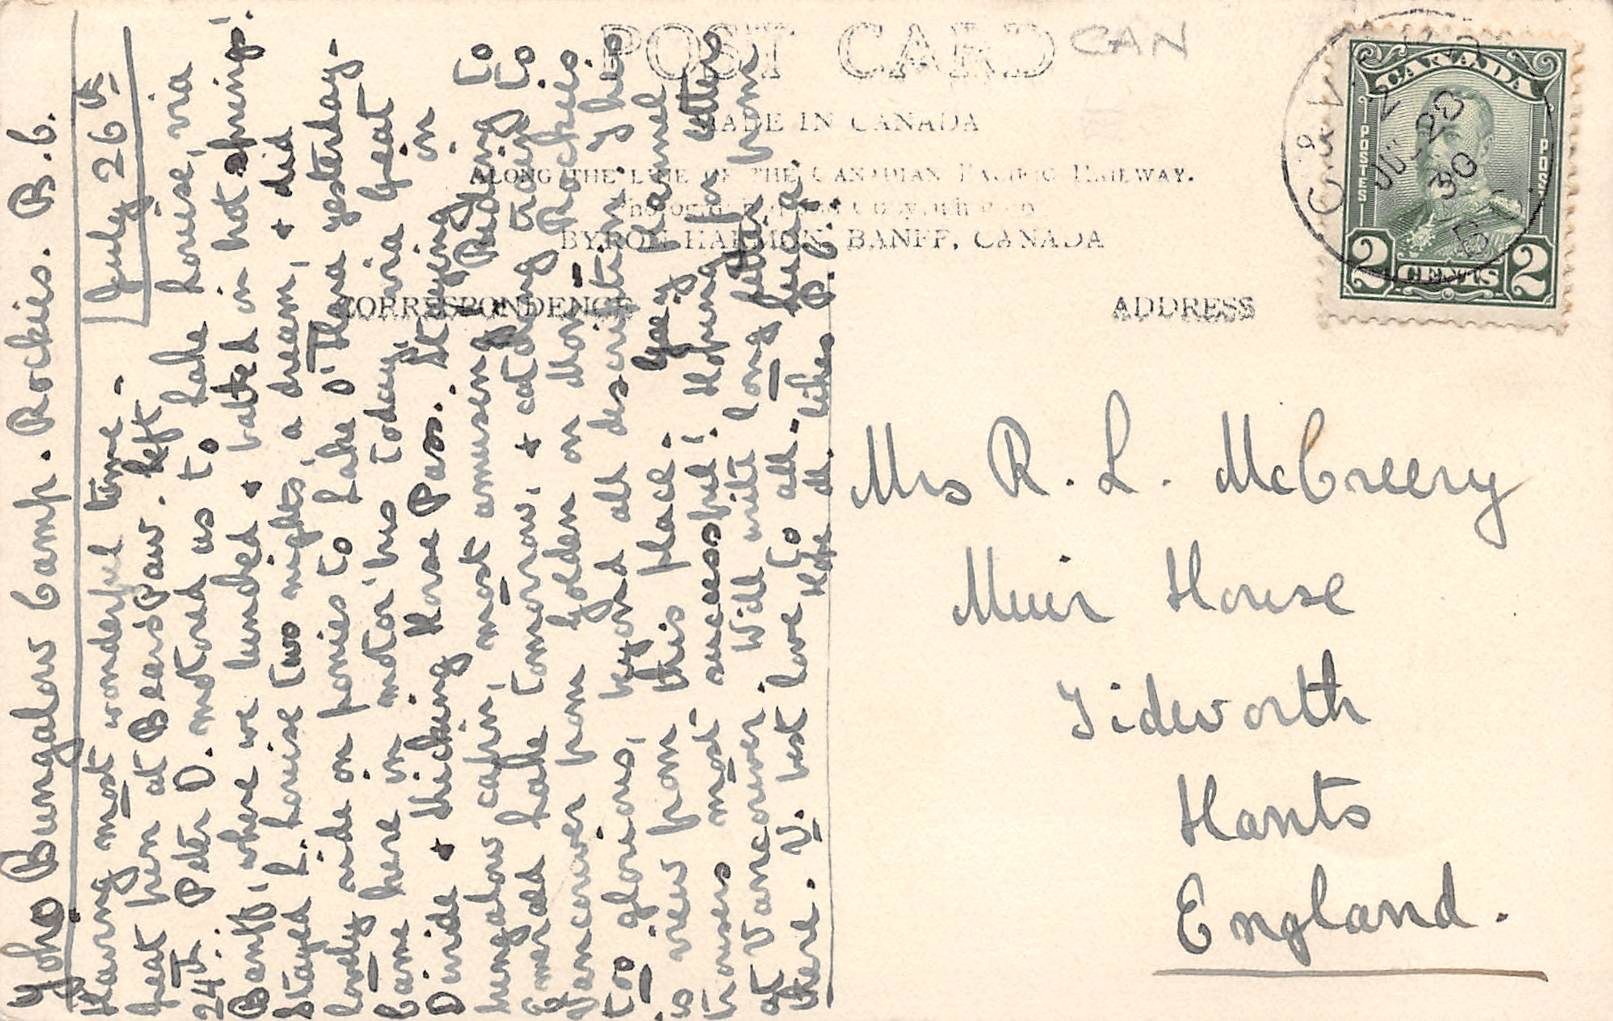 POST CARD CAN
MADE IN CANADA
ALONG THE LINE OF THE CANADIAN PACIFIC RAILWAY.
BYRON HARMON, BANFF, CANADA
CORRESPONDENCE
ADDRESS
CANADA
POSTES
POSTES
2 CENTS 2
JUL 28
30
Yoho Bungalow Camp. Rockies. B.C.
July 26th
Having most wonderful time.
Great fun at Bearspaw. Left
24th. Peter D. motored us to Lake Louise, via
Banff, where we lunched & bathed in hot springs!
Stayed L. Louise two nights, a dream, & did
lovely ride on ponies to Lake O'Hara yesterday.
Came here in motor bus today, via Great
Divide & Kicking Horse Pass. Staying in
bungalow cabin, most amusing. Riding to
Emerald Lake tomorrow, & catching train to
Vancouver from Golden on Mon. Rockies
too glorious, beyond all description. This
is view from this place. Grey flannel
trousers most successful! Hoping for letters
at Vancouver. Will write long letter from
there. V. best love to all.
Hope M. likes P.C.!
Mrs R. L. McCreery
Muir House
Tidworth
Hants
England.